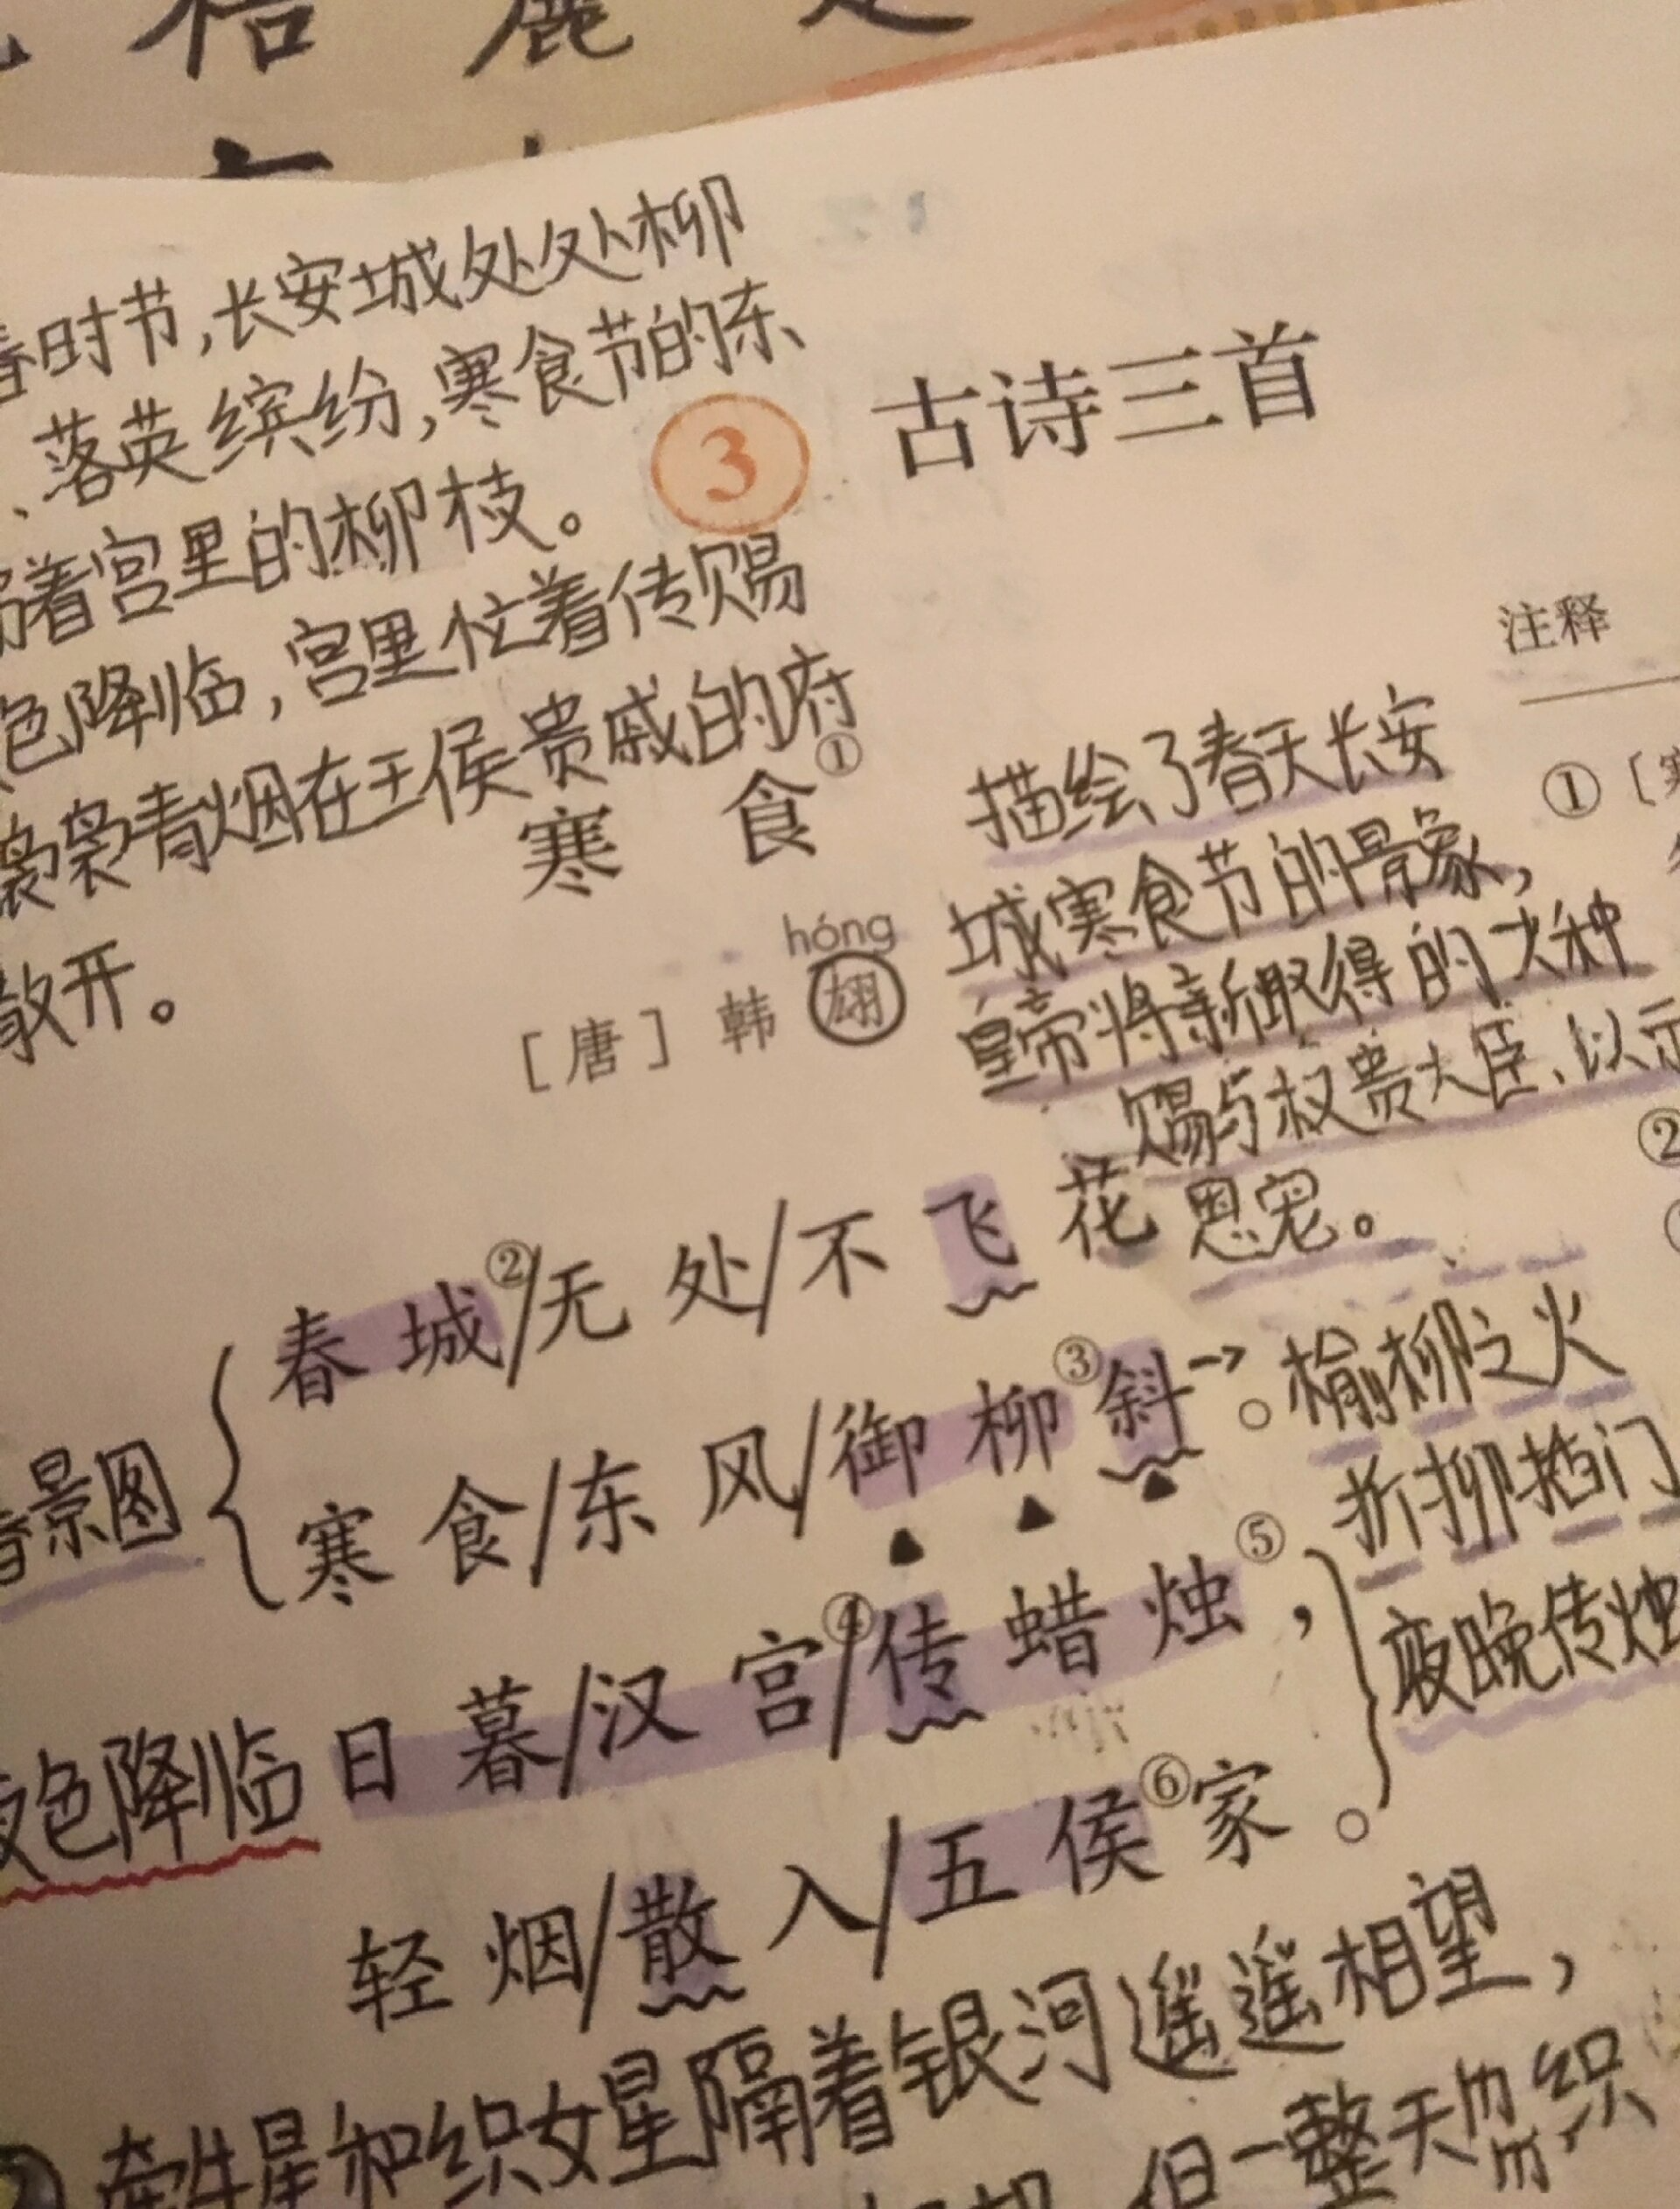 梧 鹿 是
春时节,长安城处处柳
、落英缤纷,寒食节的东、
着宫里的柳枝。
色降临,宫里忙着传赐
袅袅青烟在王侯贵戚的府
散开。
3 古诗三首
注释
寒 食①
① 〔寒
hóng
[唐] 韩 翃
描绘了春天长安
城寒食节的景象,
皇帝将新取得的火种
赐与权贵大臣、以示
恩宠。
②
春 城②/无 处/不 飞 花
寒 食/东 风/御 柳③斜→。
榆柳之火
折柳插门
春景图
日 暮/汉 宫④/传 蜡 烛⑤,
夜晚传烛
夜色降临
轻 烟/散 入/五 侯⑥家。
牵牛星和织女星隔着银河遥遥相望,
但一整天
织